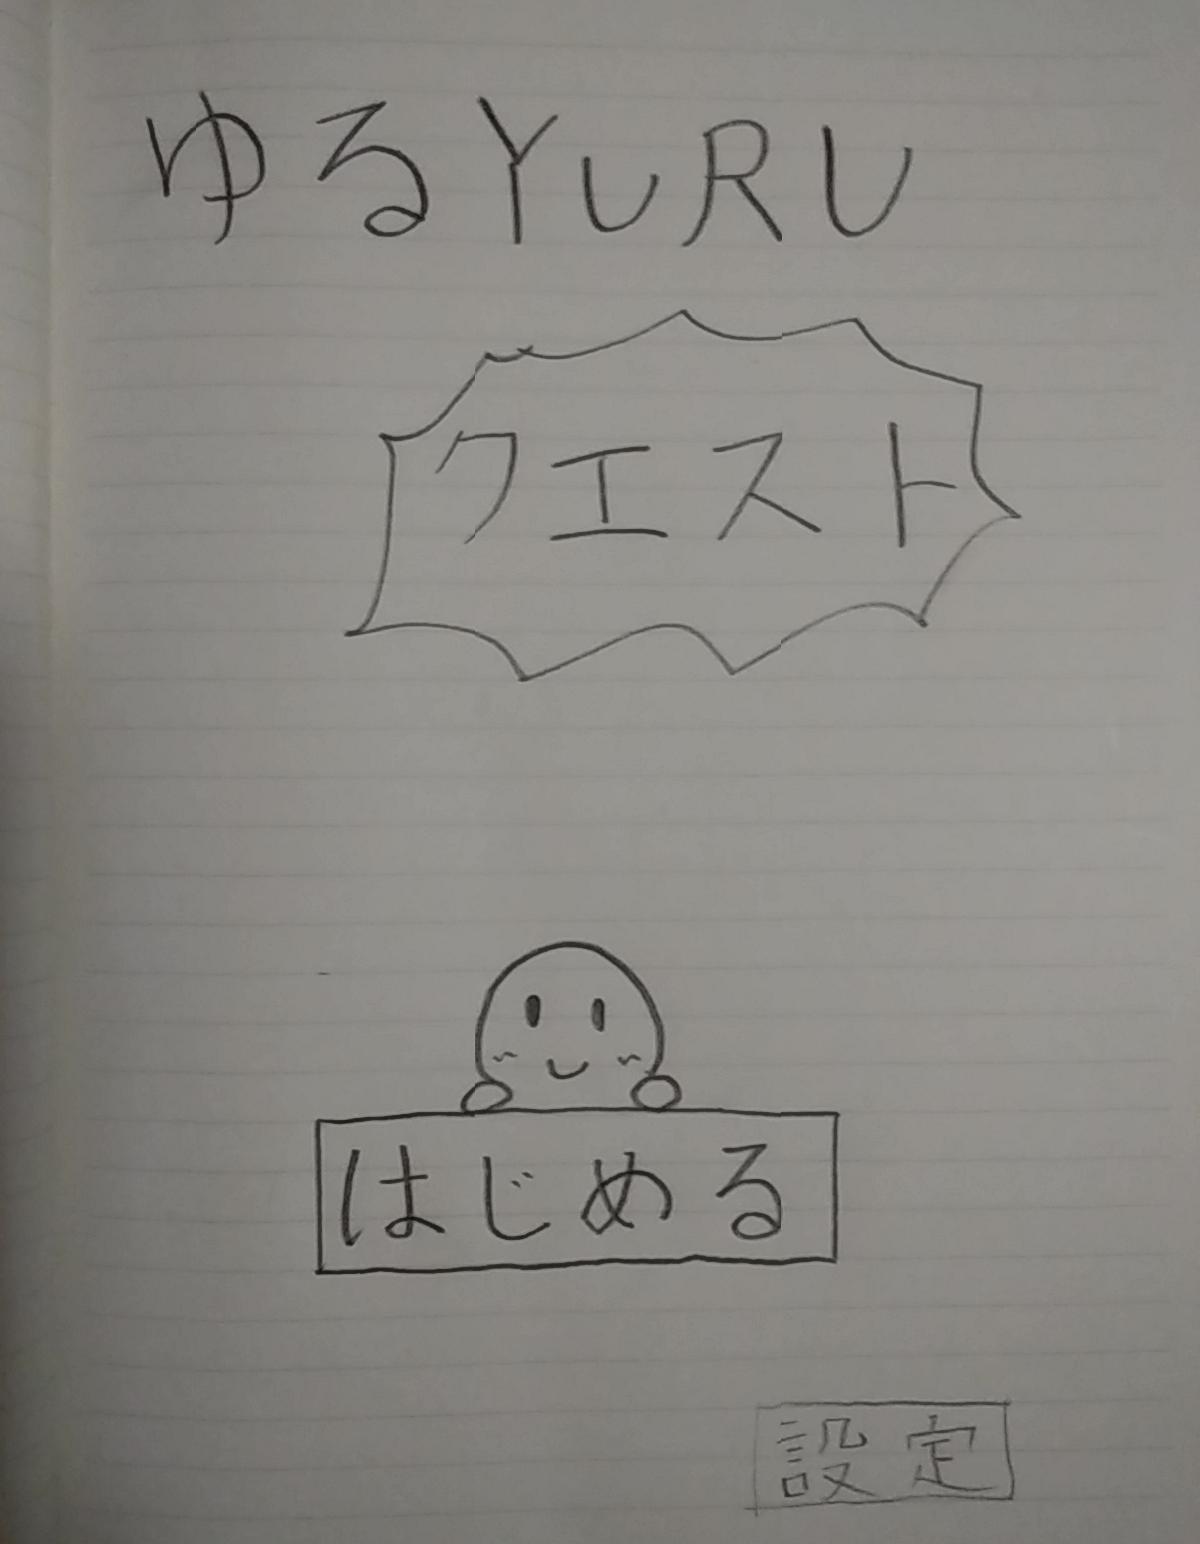 ゆるYURU
クエスト
はじめる
設定